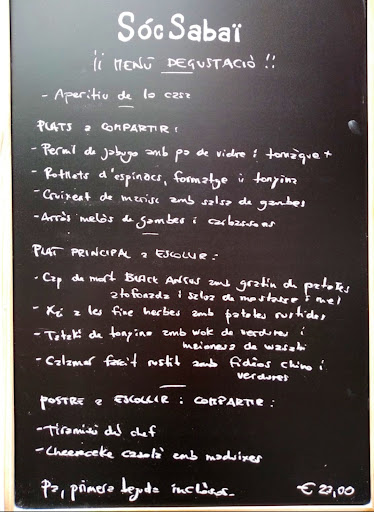 Sóc Sabaï
¡¡ MENÚ DEGUSTACIÓ !!
- Aperitiu de la casa
PLATS a COMPARTIR:
- Pernil de jabugo amb pa de vidre i tomàquet
- Rotllets d'espinacs, formatge i tonyina
- Cruixent de marisc amb salsa de gambes
- Arròs melòs de gambes i carbassons
PLAT PRINCIPAL a ESCOLLIR:
- Cap de mort BLACK ANGUS amb gratin de patates
estofonada i salsa de mostassa i mel
- Xai a les fine herbes amb patates rustides
- Tataki de tonyina amb wok de verdures i
maionesa de wasabi
- Calamar farcit rustit amb fideos chino i
verdures
POSTRE a ESCOLLIR i COMPARTIR:
- Tiramisú del chef
- Cheesecake casolà amb maduixes
Pa, primera beguda inclòses.
€ 23,00